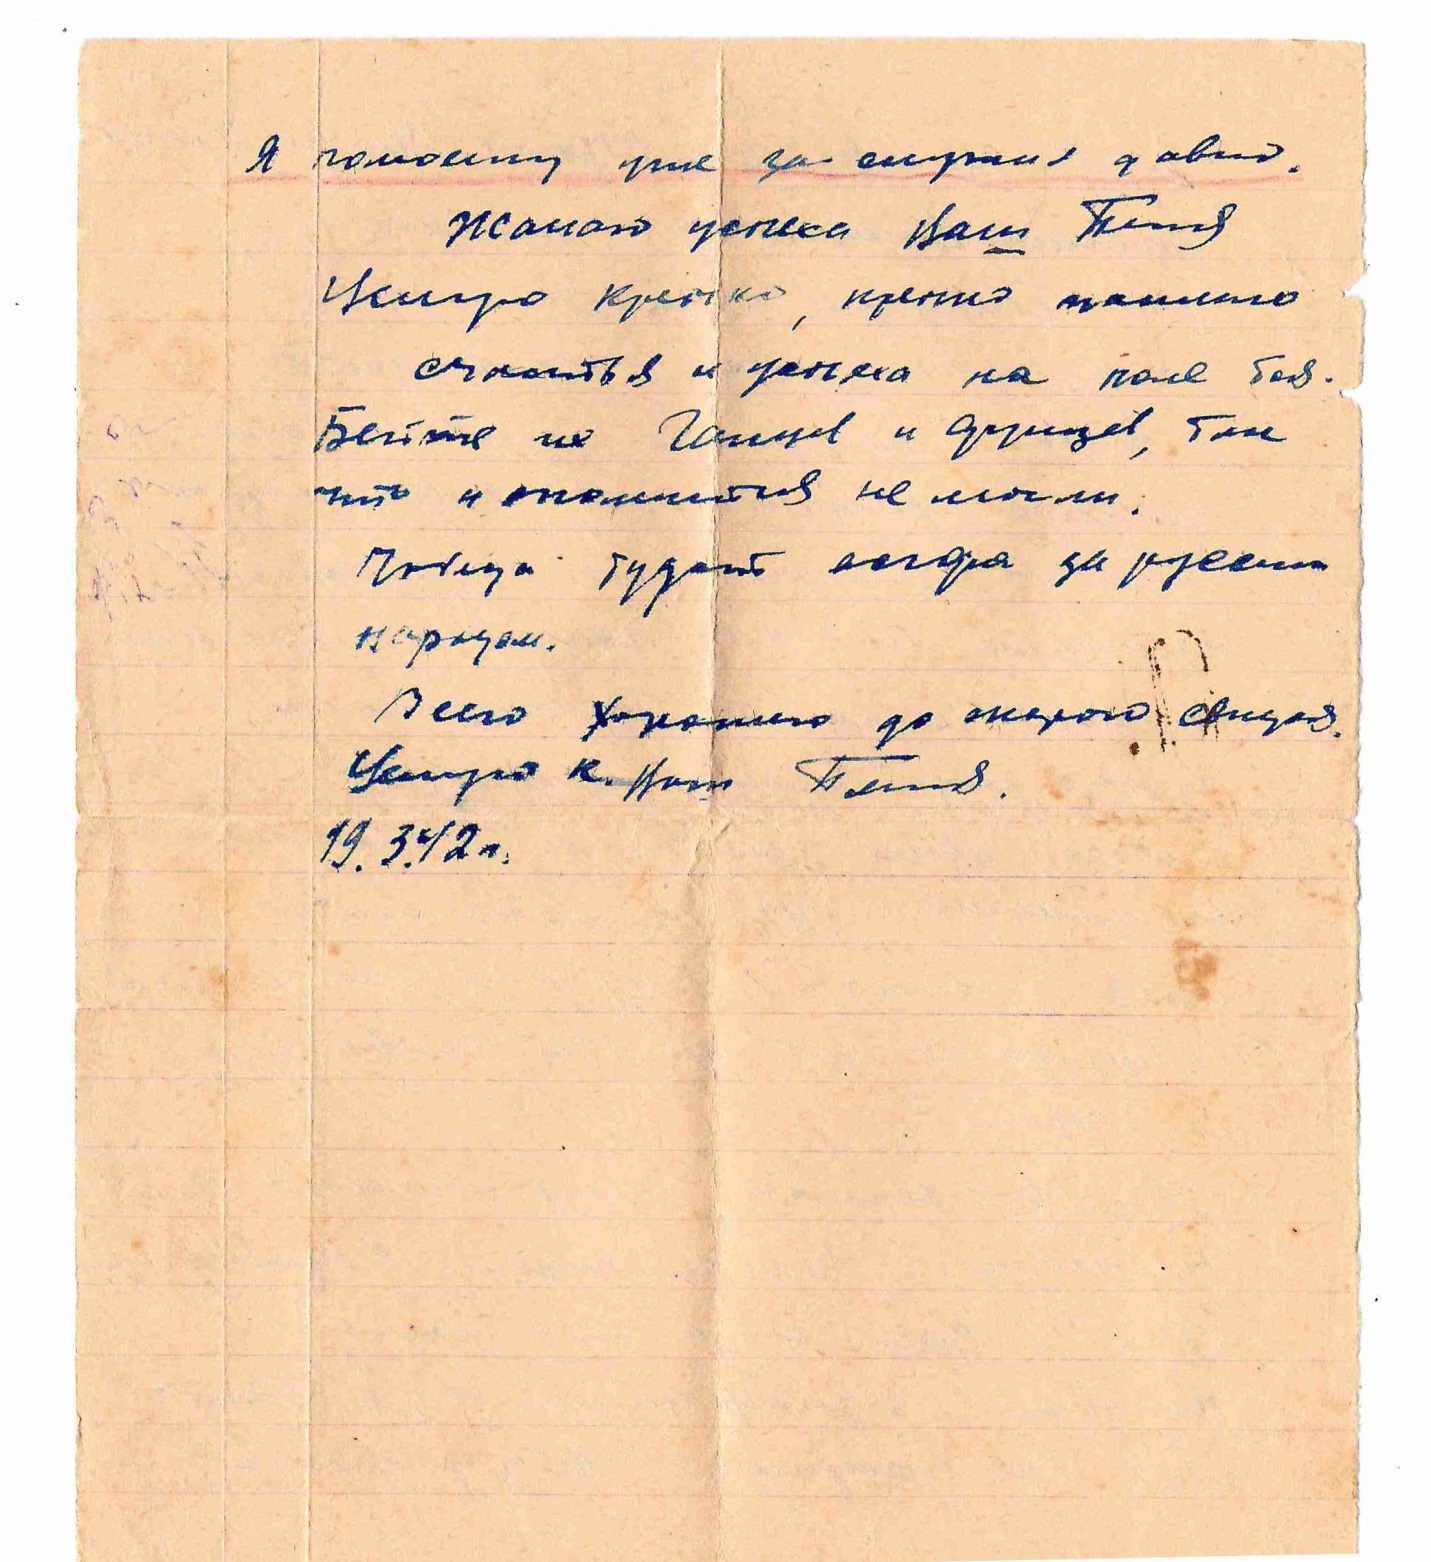 Я уже за давно.
Желаю успеха Ваш Петя
Целую крепко, крепко желаю
счастья и успеха на поле боя.
Бейте их Гансов и Фрицев, так
что и опомнится не могли.
Победа будет всегда за русским
народом.
Всего хорошего до скорого свидая.
Целую к. Ваш Петя.
19.3.42 г.